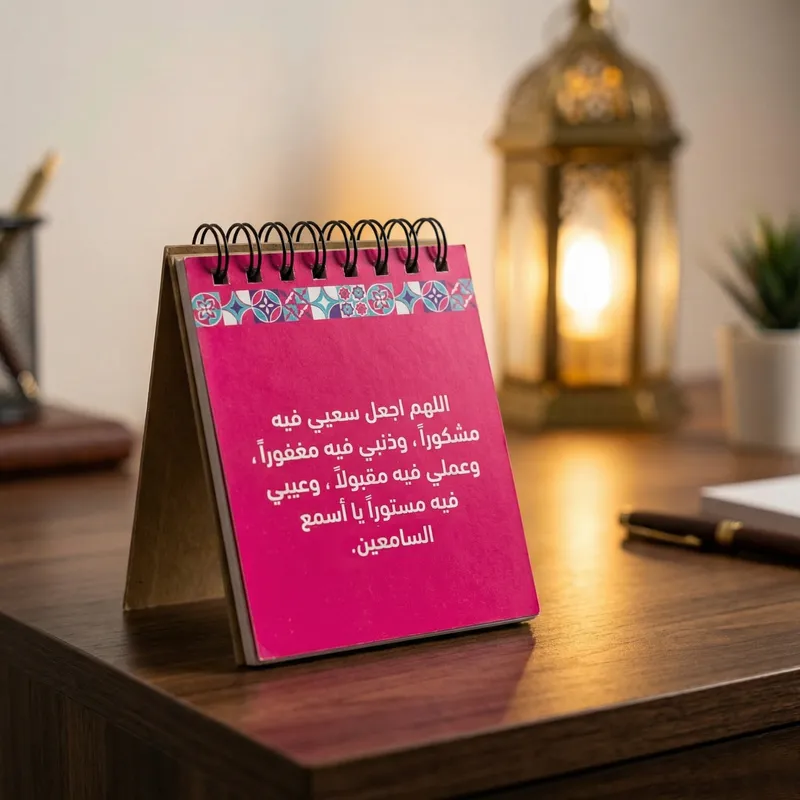 اللهم اجعل سعيي فيه
مشكوراً ، وذنبي فيه مغفوراً ،
وعملي فيه مقبولاً ، وعيبي
فيه مستوراً يا أسمع
السامعين.